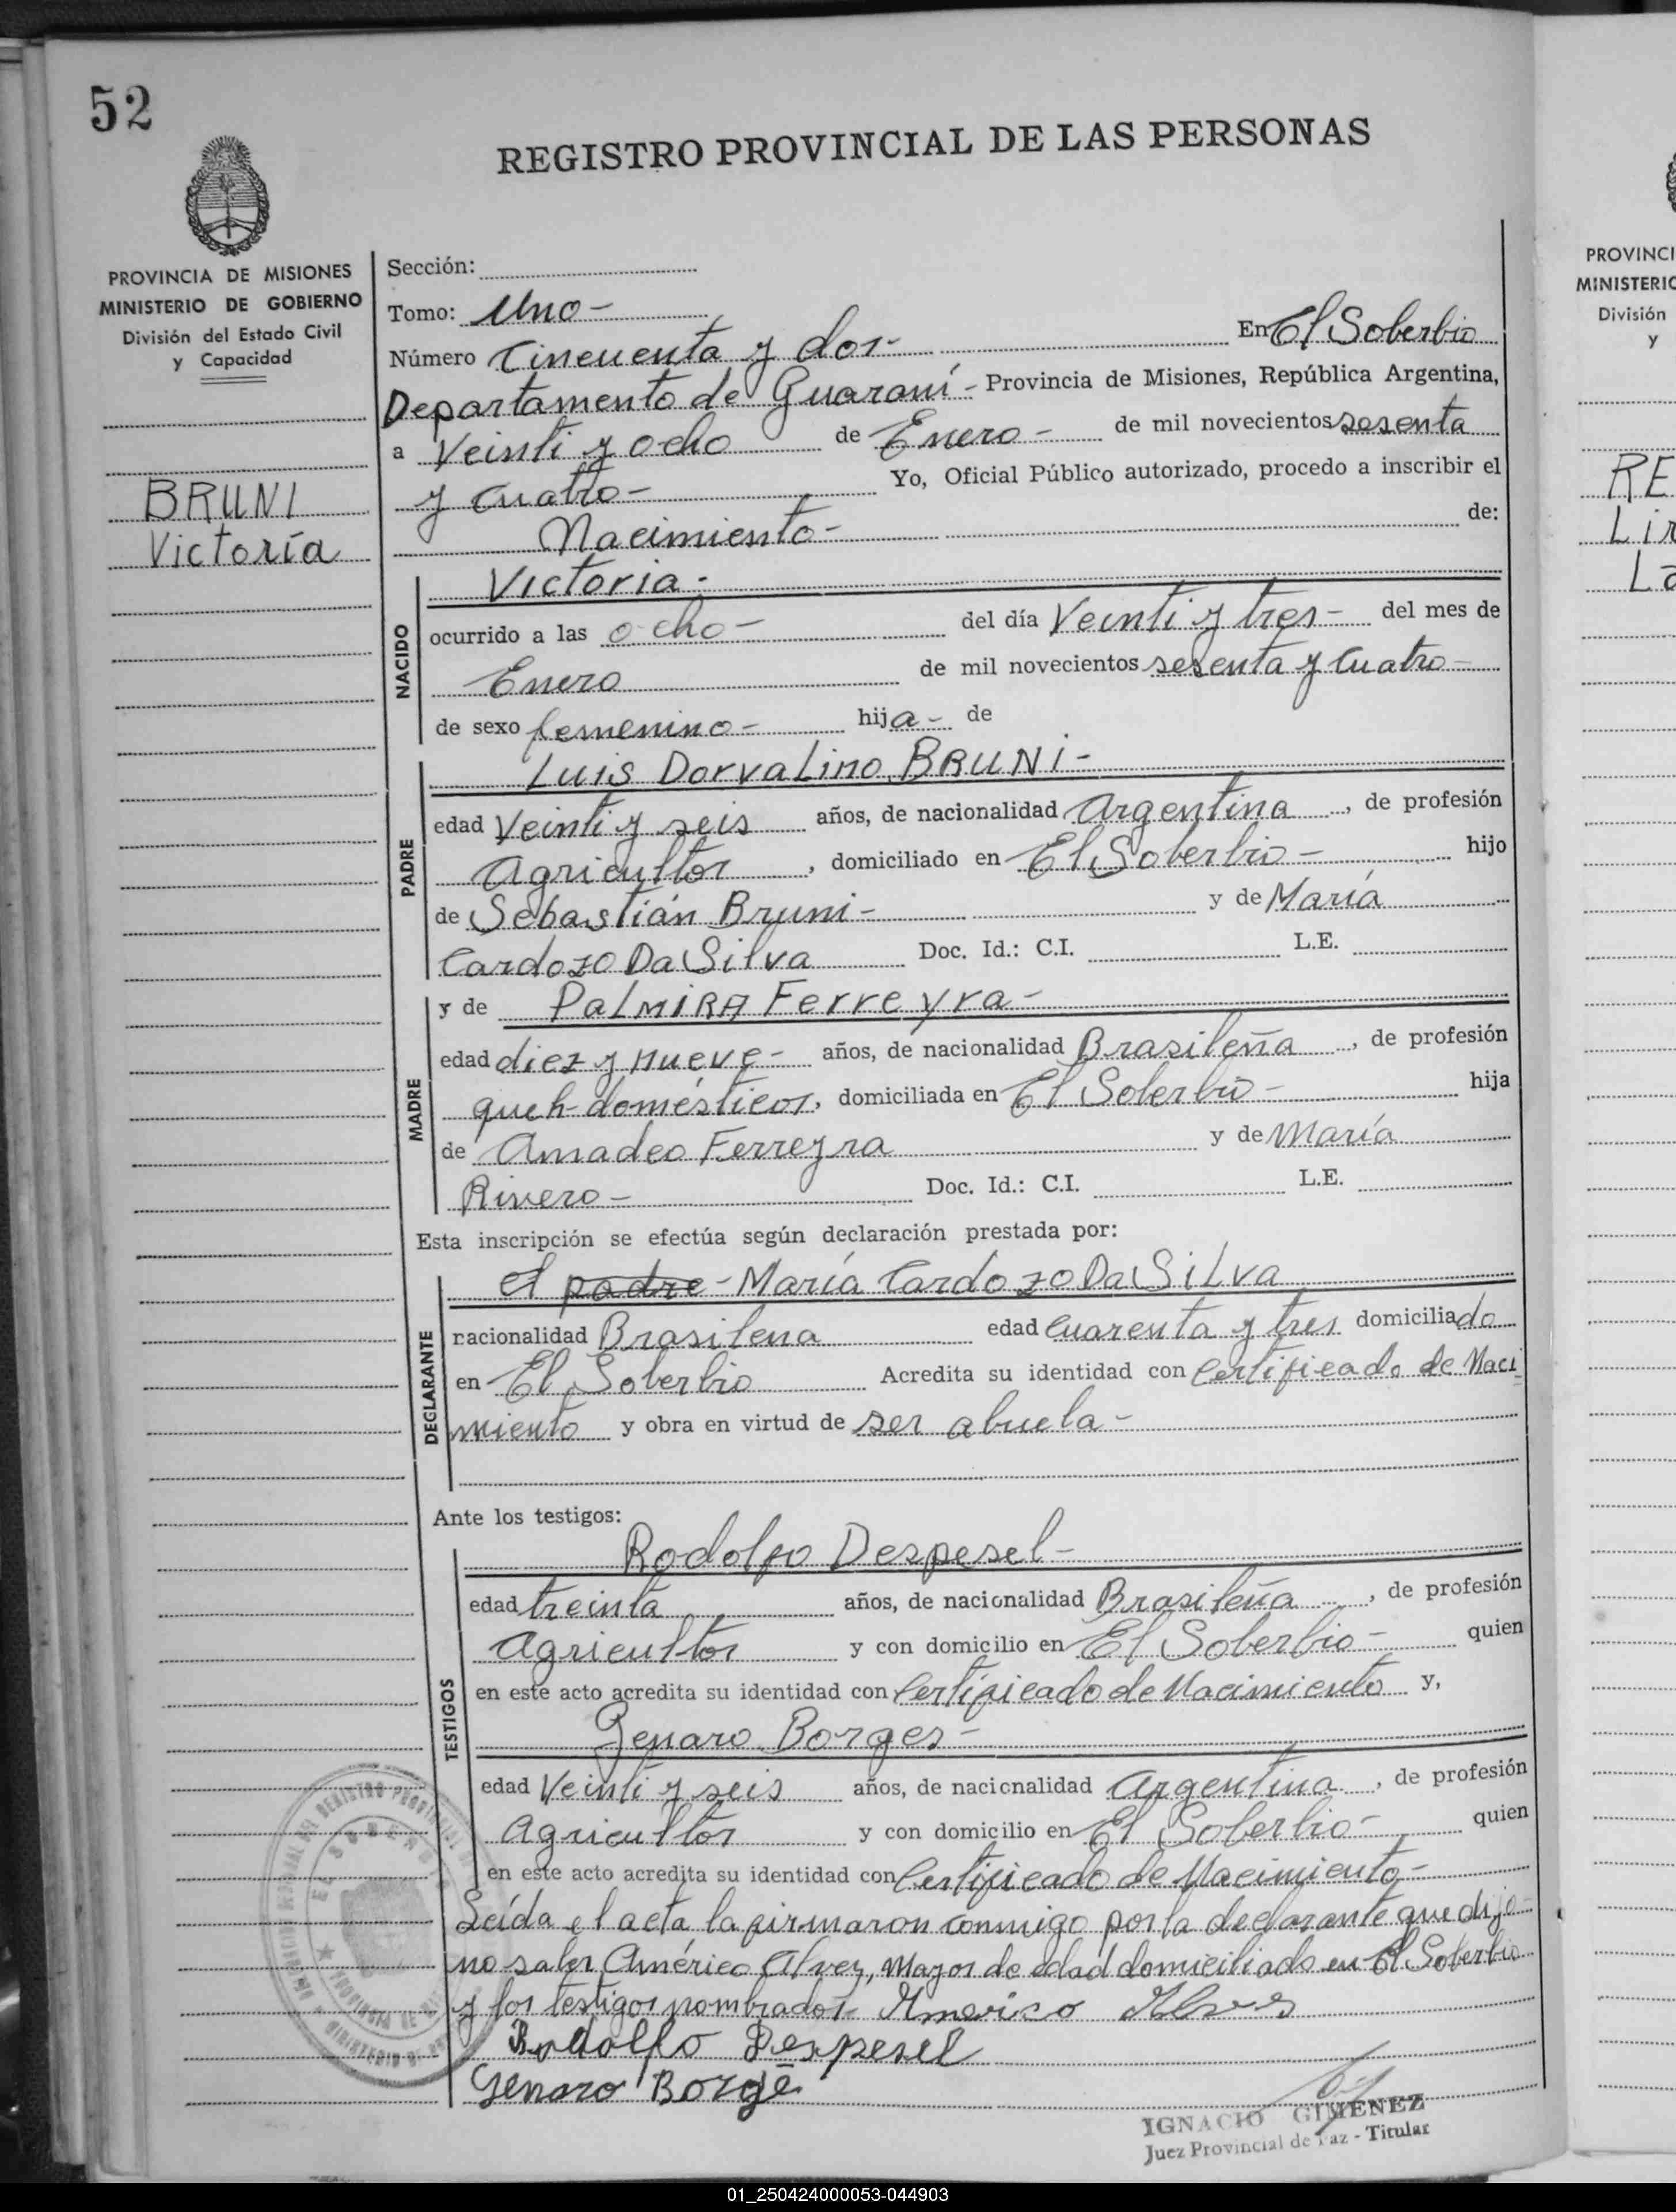 52
REGISTRO PROVINCIAL DE LAS PERSONAS
PROVINCIA DE MISIONES
MINISTERIO DE GOBIERNO
División del Estado Civil
y Capacidad
BRUNI
Victoria
Sección:
Tomo: Uno-
Número Cincuenta y dos- En El Soberbio
Departamento de Guaraní - Provincia de Misiones, República Argentina,
a Veinti y ocho de Enero - de mil novecientos sesenta
y cuatro- Yo, Oficial Público autorizado, procedo a inscribir el
Nacimiento- de:
NACIDO
Victoria-
ocurrido a las ocho- del día Veinti y tres- del mes de
Enero de mil novecientos sesenta y cuatro-
de sexo femenino- hija- de
PADRE
Luis Dorvalino BRUNI-
edad Veinti y seis años, de nacionalidad Argentina, de profesión
Agricultor, domiciliado en El Soberbio- hijo
de Sebastián Bruni- y de María
Cardozo Da Silva Doc. Id.: C.I. L.E.
MADRE
y de Palmira Ferreyra-
edad diez y nueve- años, de nacionalidad Brasileña, de profesión
queh-domésticos, domiciliada en El Soberbio- hija
de Amadeo Ferreyra y de María
Rivero- Doc. Id.: C.I. L.E.
Esta inscripción se efectúa según declaración prestada por:
DECLARANTE
el padre - María Cardozo Da Silva
nacionalidad Brasilena edad Cuarenta y tres domiciliado
en El Soberbio Acredita su identidad con Certificado de Naci
miento y obra en virtud de ser abuela-
Ante los testigos:
TESTIGOS
Rodolfo Despesel-
edad treinta años, de nacionalidad Brasileña, de profesión
Agricultor y con domicilio en El Soberbio- quien
en este acto acredita su identidad con Certificado de Nacimiento y,
Genaro Borges-
edad Veinti y seis años, de nacionalidad Argentina, de profesión
Agricultor y con domicilio en El Soberbio- quien
en este acto acredita su identidad con Certificado de Nacimiento-
Leída el acta, la firmaron conmigo por la declarante que dijo-
no saber Américo Alvez, Mayor de edad domiciliado en El Soberbio
y los testigos nombrados- Americo Alves
Rodolfo Despesel
Genaro Borge
IGNACIO GIMENEZ
Juez Provincial de Paz - Titular
PROVINCI
MINISTERIO
División
y
RE
Lir
La
01_250424000053-044903